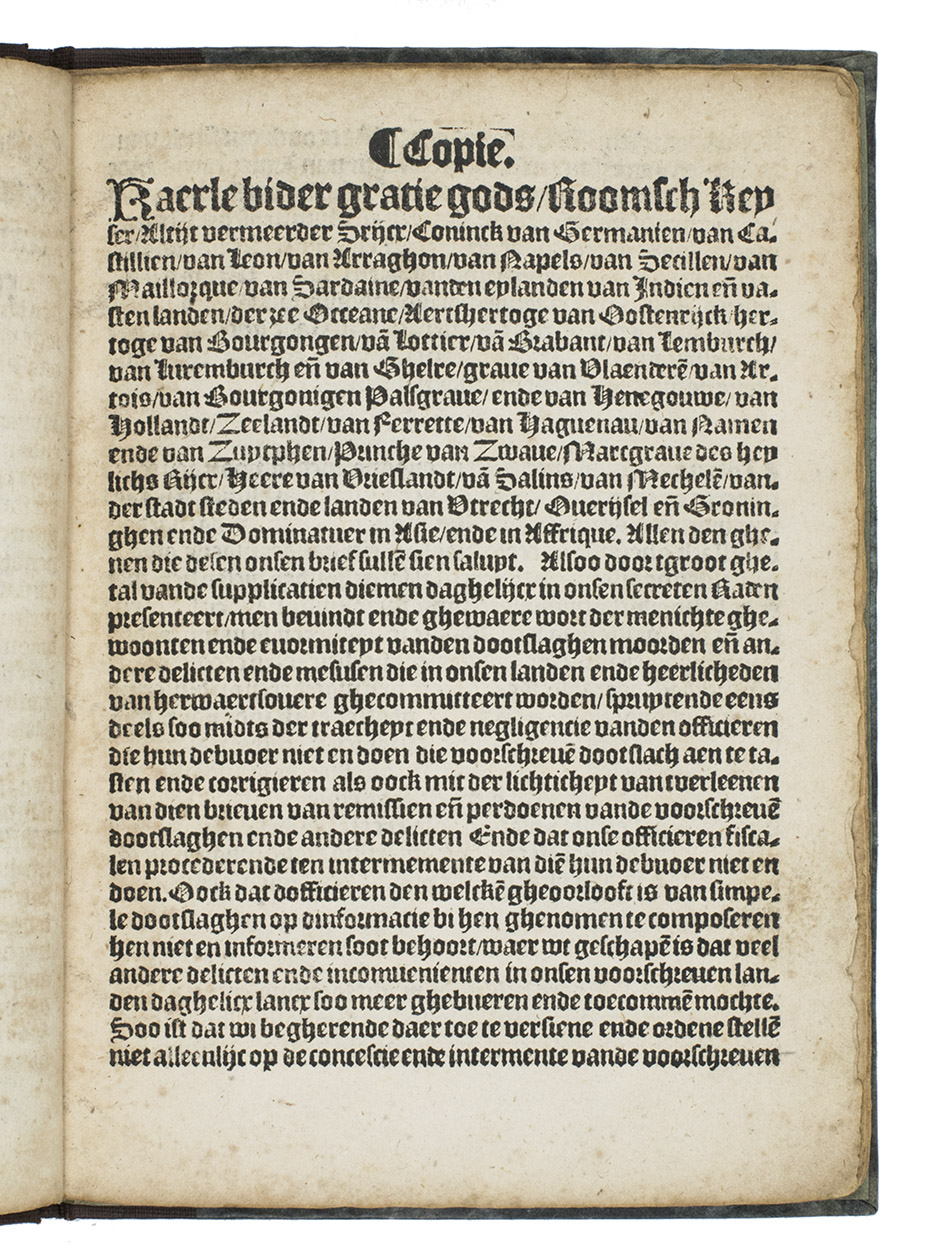 ⸿Copie.
Kaerle bider gratie gods/Roomsch Key
ser/Altijt vermeerder Srijcx/Coninck van Germanien/van Ca⸗
stillien/van Leon/van Arraghon/van Napels/van Secillen/van
Maillorque/van Sardaine/vanden eylanden van Indien eñ va⸗
sten landen/der zee Occeane/Aertshertoge van Oostenrijck/her⸗
toge van Bourgongen/vã Lottier/vã Brabant/van Lemburch/
van Luxemburch eñ van Ghelre/graue van Vlaenderẽ/van Ar⸗
tois/van Bourgonigen Palsgraue/ ende van Henegouwe/ van
Hollandt/Zeelandt/van Ferrette/van Haguenau/van Namen
ende van Zuytphen/Prinche van Zwaue/Marcgraue des hey
lichs Rijcx/Heere van Vrieslandt/vã Salins/van Mechelẽ/van⸗
der stadt steden ende landen van Vtrecht/ Ouerijsel eñ Gronin⸗
ghen ende Dominatuer in Asie/ende in Affrique. Allen den ghe⸗
nen die desen onsen brief sullẽ sien saluyt. Alsoo door tgroot ghe⸗
tal vande supplicatien diemen daghelijcx in onsen secreten Raden
presenteert/men beuindt ende ghewaere wort der menichte ghe⸗
woonten ende euormiteyt vanden dootslaghen moorden eñ an⸗
dere delicten ende mesusen die in onsen landen ende heerlicheden
van herwaertsouere ghecommitteert worden/spruytende eens
deels soo midts der traecheyt ende negligencie vanden officieren
die hun debuoer niet en doen die voorschreuẽ dootslach aen te ta⸗
sten ende corrigieren als oock mit der lichticheyt van tverleenen
van dien brieuen van remissien eñ perdoenen vande voorschreuẽ
dootslaghen ende andere delicten Ende dat onse officieren fisca⸗
len procederende ten intermemente van diẽ hun debuoer niet en
doen. Oock dat dofficieren den welckẽ gheoorlooft is van simpe⸗
le dootslaghen op dinformacie bi hen ghenomen te composeren
hen niet en informeren soot behoort/waer wt geschapẽ is dat veel
andere delicten ende inconuenienten in onsen voorschreuen lan⸗
den daghelicx lancx soo meer ghebueren ende toecommẽ mochte.
Soo ist dat wi begherende daer toe te versiene ende ordene stellẽ
niet alleenlijc op de concescie ende intermente vande voorschreuen